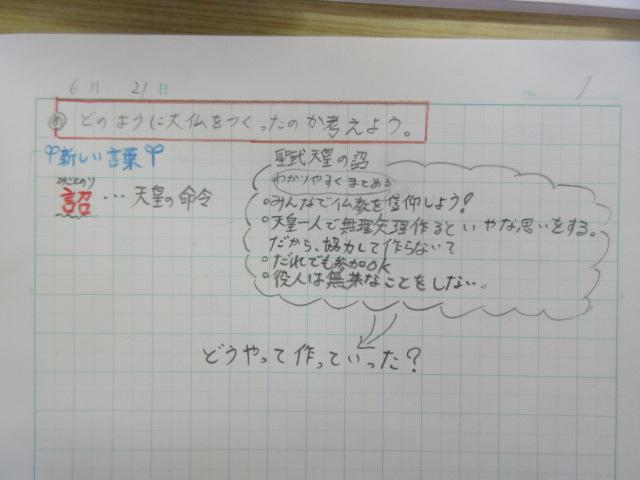 6月 21日
No. 1
め どのように大仏をつくったのか考えよう。
新しい言葉
みことのり
詔…天皇の命令
聖武天皇の詔
わかりやすくまとめる
○みんなで仏教を信仰しよう!
○天皇一人で無理矢理作るといやな思いをする。
だから、協力して作らない?
○だれでも参加OK
○役人は無茶なことをしない。
どうやって作っていった?